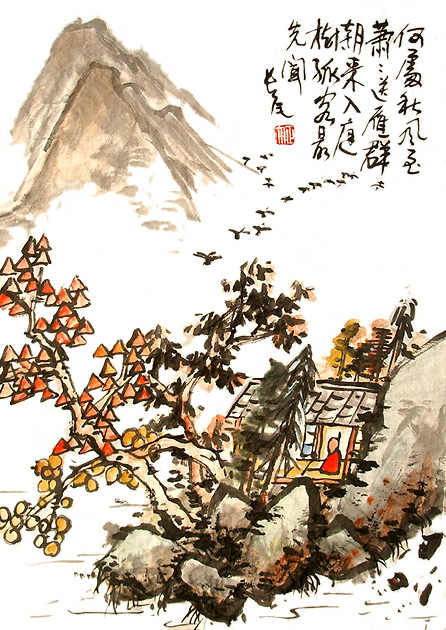 何處秋風至
蕭〻送雁群
朝来入庭
樹孤客最
先聞